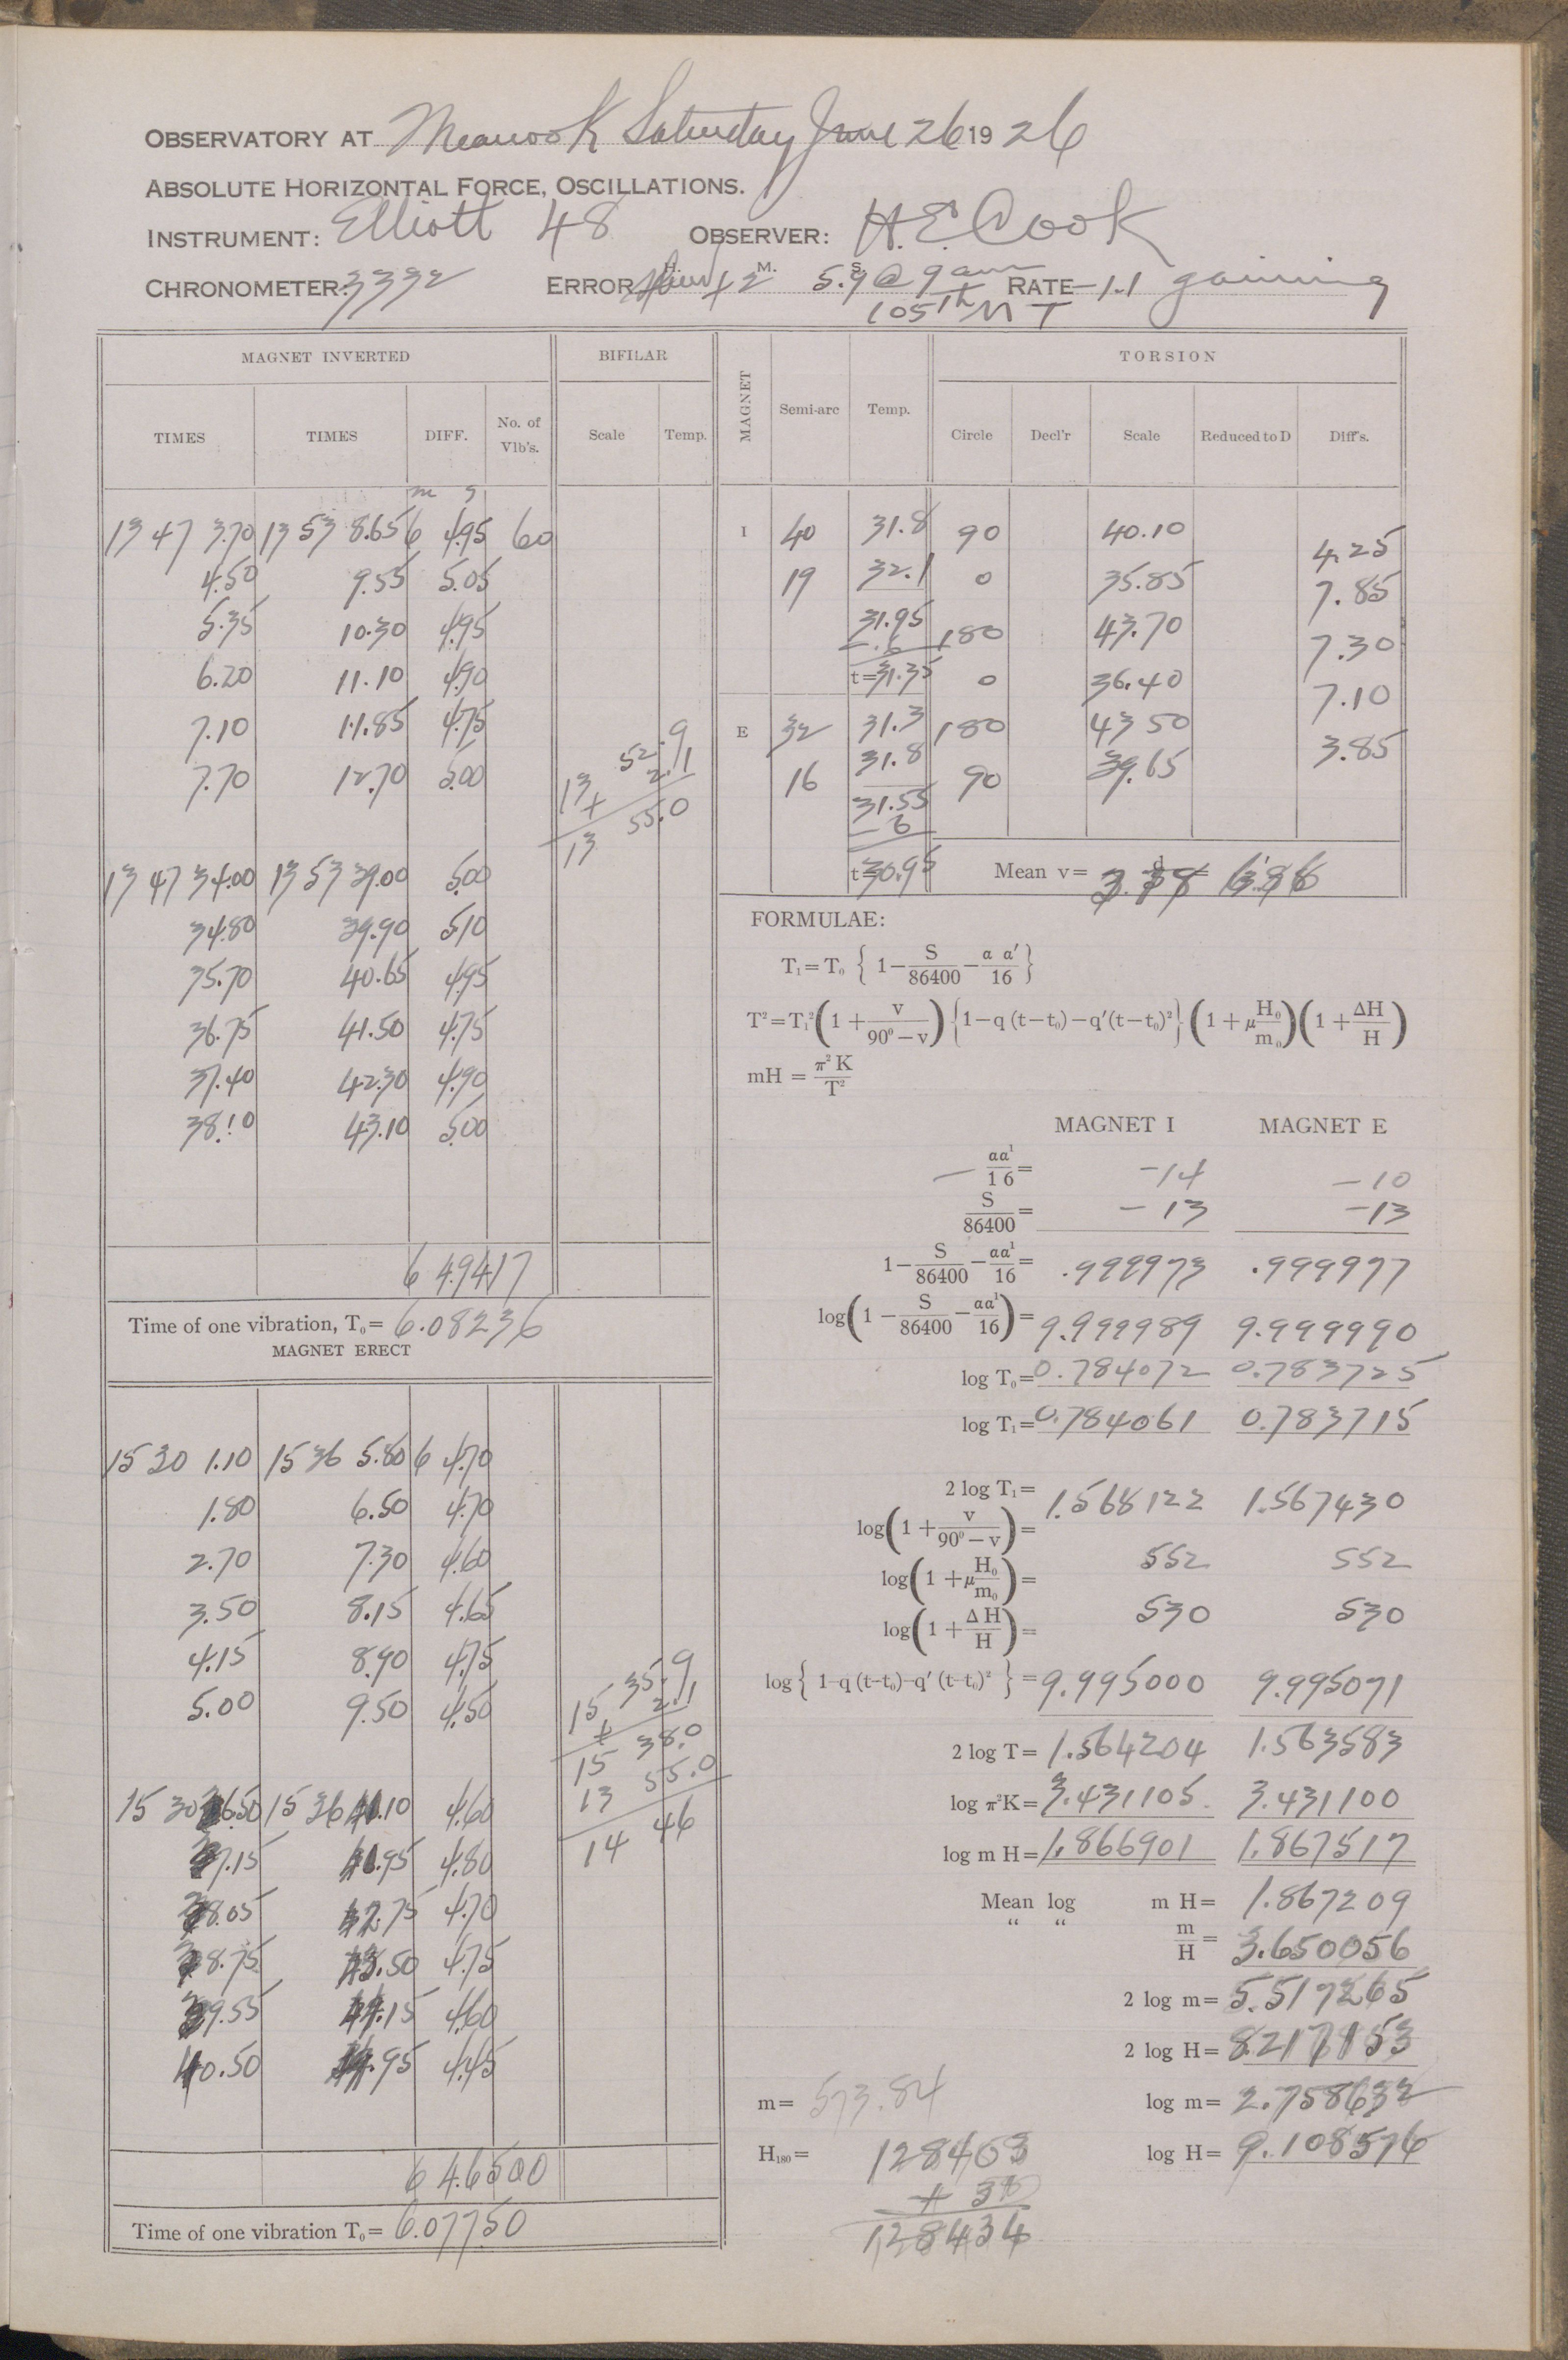 OBSERVATORY AT Meanook Saturday June 26 19 26
ABSOLUTE HORIZONTAL FORCE, OSCILLATIONS.
INSTRUMENT: Elliott 48 OBSERVER: H. E. Cook
CHRONOMETER: 3332 ERROR H. + 2 M. 5.9 S. @ 9 am RATE -1.1 gaining
105th M T
MAGNET INVERTED BIFILAR
TIMES TIMES DIFF. No. of Vib's. Scale Temp.
m s
13 47 3.70 13 53 8.65 6 4.95 60
4.50 9.55 5.05
5.35 10.30 4.95
6.20 11.10 4.90
7.10 11.85 4.75
7.70 12.70 5.00
13 52.9
+ 2.1
13 55.0
13 47 34.00 13 53 39.00 5.00
34.80 39.90 5.10
35.70 40.65 4.95
36.75 41.50 4.75
37.40 42.30 4.90
38.10 43.10 5.00
6 4.9417
Time of one vibration, T₀= 6.08236
MAGNET ERECT
15 30 1.10 15 36 5.80 6 4.70
1.80 6.50 4.70
2.70 7.30 4.60
3.50 8.15 4.65
4.15 8.90 4.75
5.00 9.50 4.50
15 35.9
+ 2.1
15 38.0
13 55.0
14 46
15 30 36.50 15 36 41.10 4.60
37.15 41.95 4.80
38.05 42.75 4.70
38.75 43.50 4.75
39.55 44.15 4.60
40.50 44.95 4.45
6 4.6500
Time of one vibration T₀= 6.07750
MAGNET Semi-arc Temp. TORSION
Circle Decl'r Scale Reduced to D Diff's.
I 40 31.8 90 40.10
4.25
19 32.1 0 35.85
7.85
31.95 180 43.70
-.6
7.30
t=31.35 0 36.40
7.10
E 32 31.3 180 43 50
3.85
16 31.8 90 39.65
31.55
- 6
t=30.95 Mean v=
FORMULAE:
T₁=T₀ { 1-S/86400-α α'/16 }
T²=T₁²(1+v/90°-v){1-q (t-t₀)-q'(t-t₀)²}(1+μH₀/m₀)(1+ΔH/H)
mH = π²K/T²
MAGNET I MAGNET E
- αα¹/16= -14 -10
S/86400= -13 -13
1-S/86400-αα¹/16= .999973 .999977
log(1-S/86400-αα¹/16)= 9.999989 9.999990
log T₀= 0.784072 0.783725
log T₁= 0.784061 0.783715
2 log T₁= 1.568122 1.567430
log(1+v/90°-v)= 552 552
log(1+μH₀/m₀)= 530 530
log(1+ΔH/H)=
log{ 1-q (t-t₀)-q' (t-t₀)² }= 9.995000 9.995071
2 log T= 1.564204 1.563583
log π²K= 3.431105 3.431100
log m H= 1.866901 1.867517
Mean log m H= 1.867209
“ “ m/H= 3.650056
2 log m= 5.517265
2 log H= 8.217153
m= 573.84 log m= 2.758632
H₁₈₀= 128403 log H= 9.108576
+ 
128434